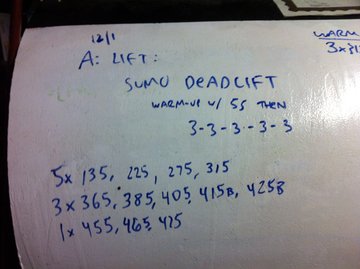 12/1
A: LIFT:
SUMO DEADLIFT
WARM-UP W/ 5S THEN
3-3-3-3-3
5x 135, 225, 275, 315
3x 365, 385, 405, 415B, 425B
1x 455, 465, 475
WARM